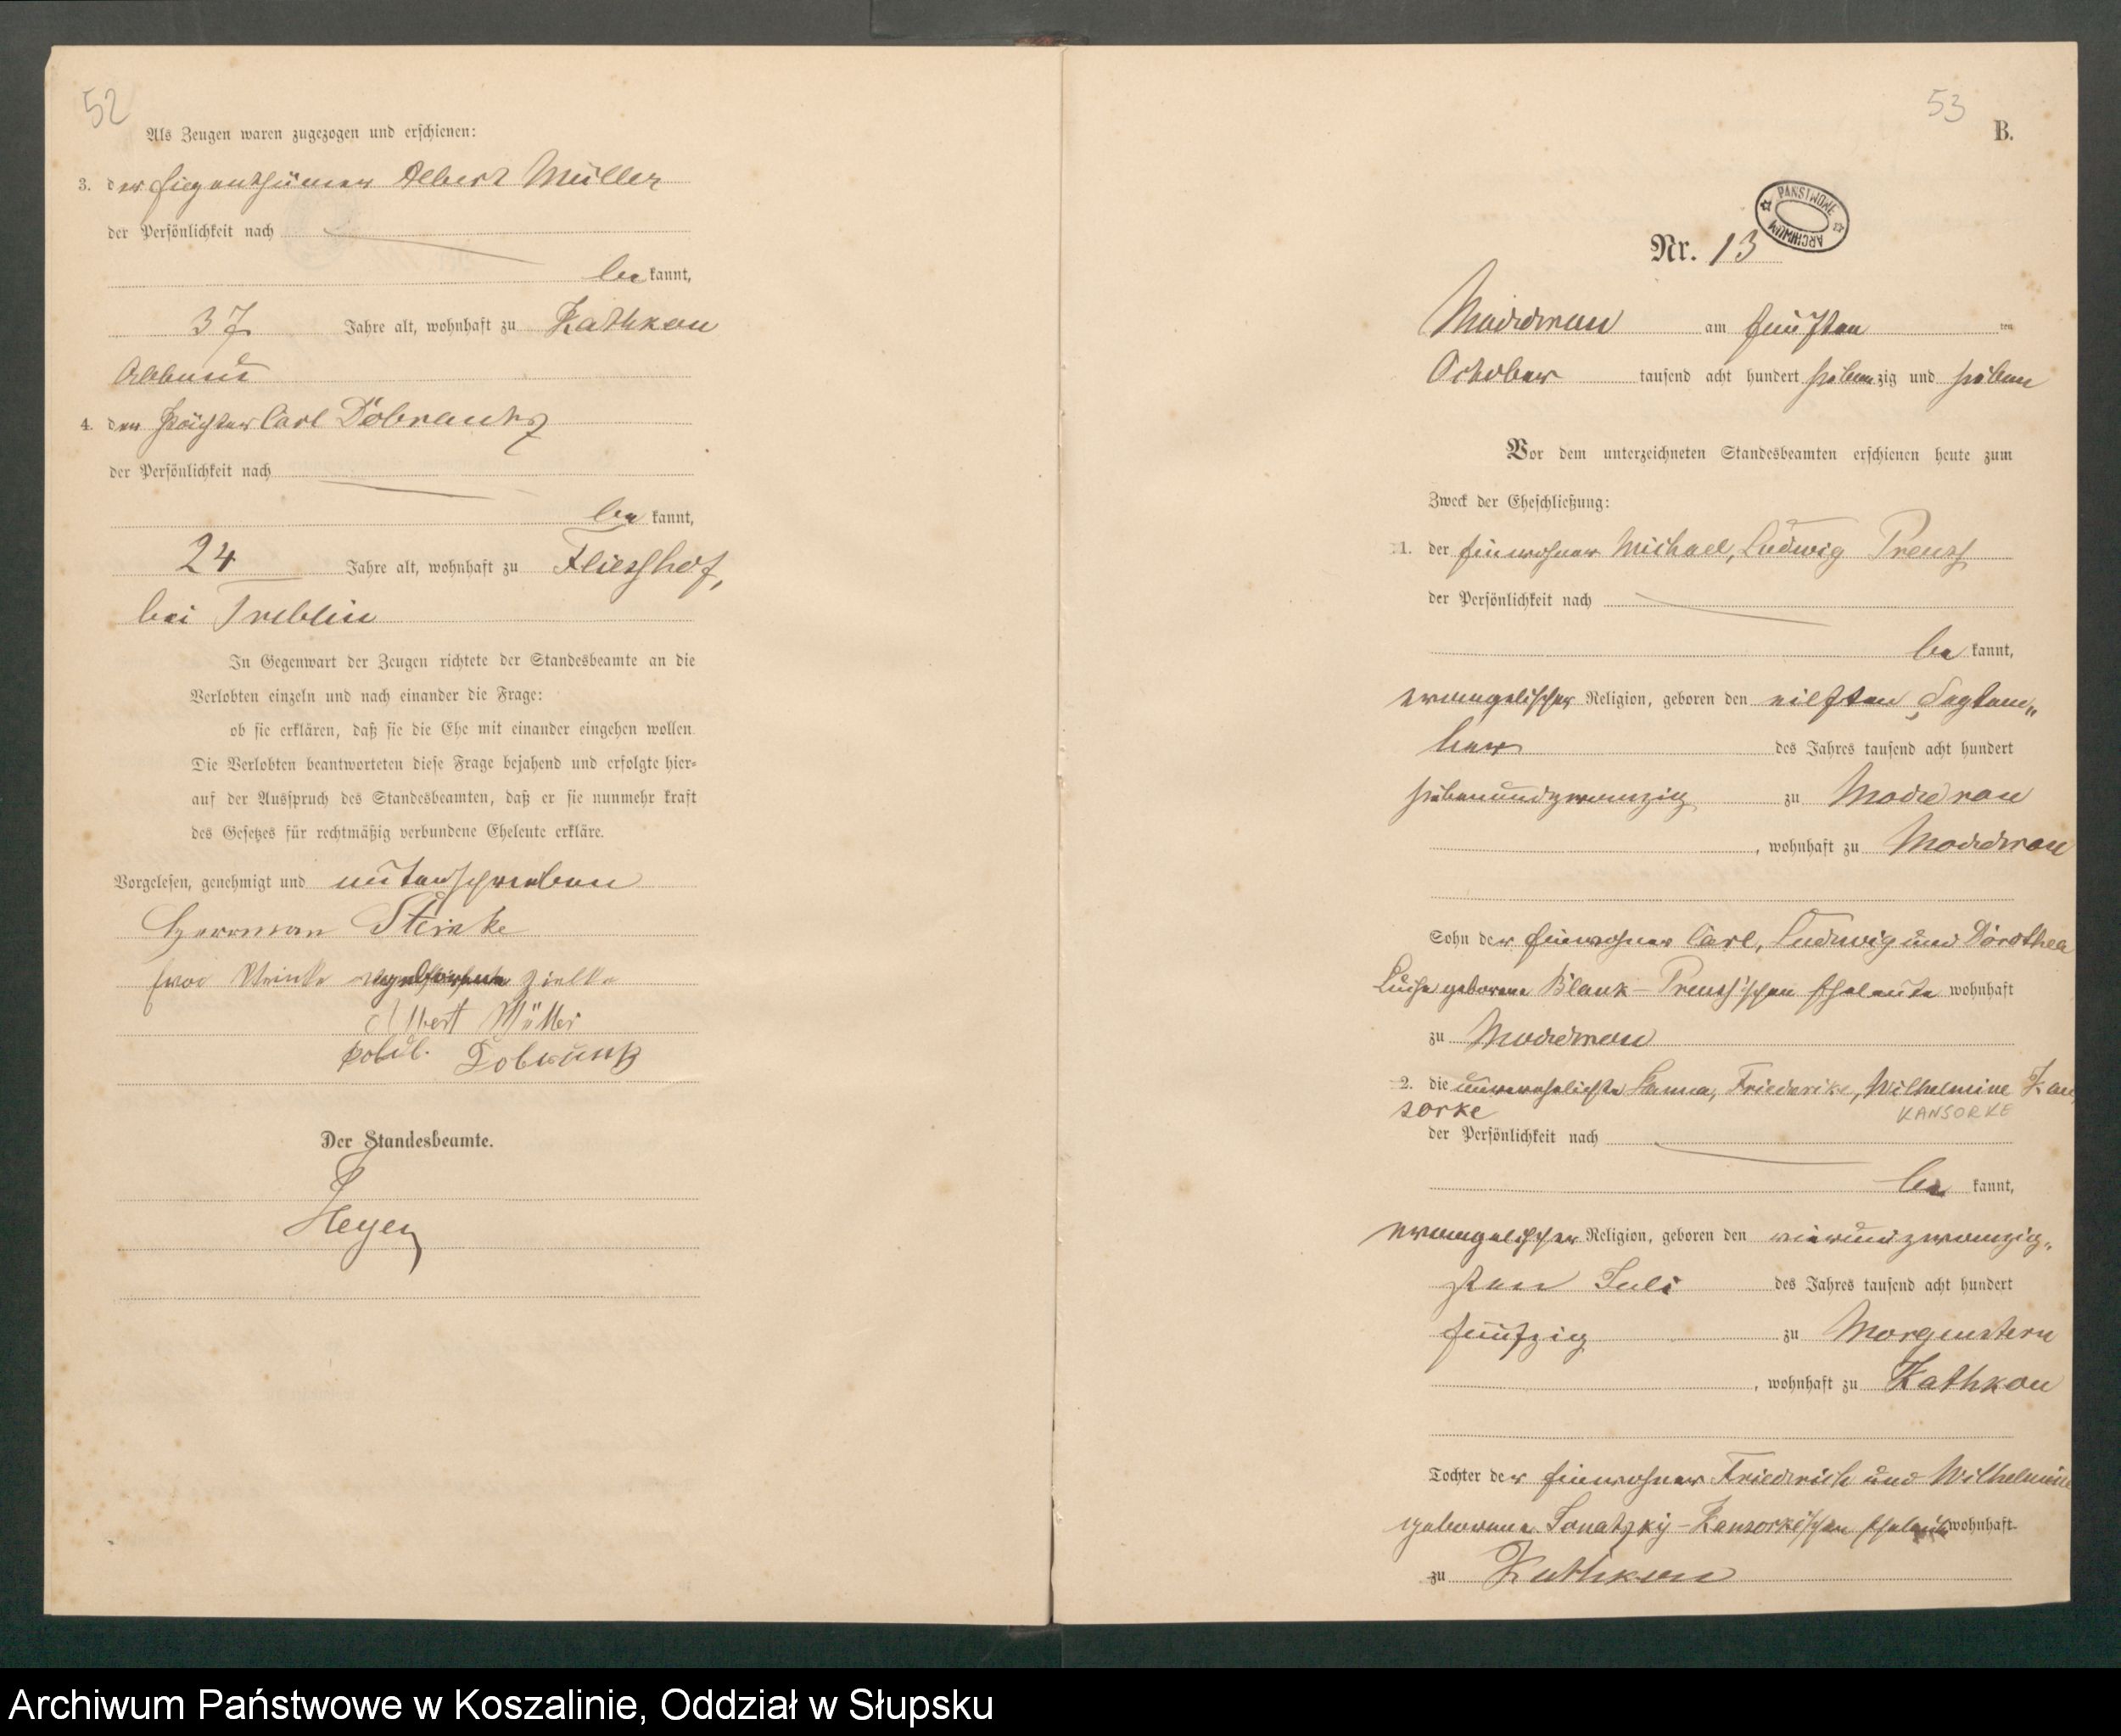 52
Als Zeugen waren zugezogen und erschienen:
3. der Eigenthümer Albert Müller
der Persönlichkeit nach
be kannt,
37 Jahre alt, wohnhaft zu Kathkow
Abbau
4. der Pächter Carl Dobrantz
der Persönlichkeit nach
be kannt,
24 Jahre alt, wohnhaft zu Flieshof,
bei Treblin
In Gegenwart der Zeugen richtete der Standesbeamte an die
Verlobten einzeln und nach einander die Frage:
ob sie erklären, daß sie die Ehe mit einander eingehen wollen.
Die Verlobten beantworteten diese Frage bejahend und erfolgte hier-
auf der Ausspruch des Standesbeamten, daß er sie nunmehr kraft
des Gesetzes für rechtmäßig verbundene Eheleute erkläre.
Vorgelesen, genehmigt und unterschrieben
Herrman Steinke
Steinke Zielke
Albert Müller
Dobrunz
Der Standesbeamte.
Heyer
53
B.
PAŃSTWOWE ARCHIWUM
Nr. 13
Moddrow am fünften ten
October tausend acht hundert siebenzig und sieben
Vor dem unterzeichneten Standesbeamten erschienen heute zum
Zweck der Eheschließung:
1. der Einwohner Michael, Ludwig Preuss
der Persönlichkeit nach
be kannt,
evangelischer Religion, geboren den eilften Septem„
ber des Jahres tausend acht hundert
siebenundzwanzig zu Moddrow
, wohnhaft zu Moddrow
Sohn der Einwohner Carl, Ludwig und Dorothea
Luise geborene Blank-Preuss'schen Eheleute wohnhaft
zu Moddrow
2. die unverehelichte Hanna, Friederike, Wilhelmine Kan
sorke KANSORKE
der Persönlichkeit nach
be kannt,
evangelischer Religion, geboren den vierundzwanzig„
sten Juli des Jahres tausend acht hundert
fünfzig zu Morgenstern
, wohnhaft zu Kathkow
Tochter der Einwohner Friedrich und Wilhelmine
geborene Sonatzky-Kansorkeschen Eheleute wohnhaft
zu Kathkow
Archiwum Państwowe w Koszalinie, Oddział w Słupsku